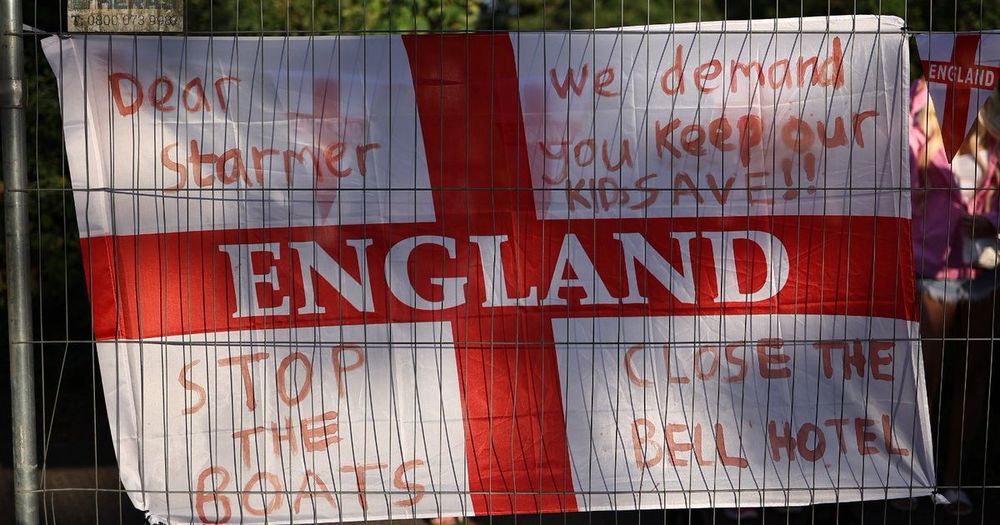 T: 0800 073 993
Dear
Starmer
We demand
you keep our
KIDS SAVE!!
ENGLAND
STOP
THE
BOATS
CLOSE THE
BELL HOTEL
ENGLAND